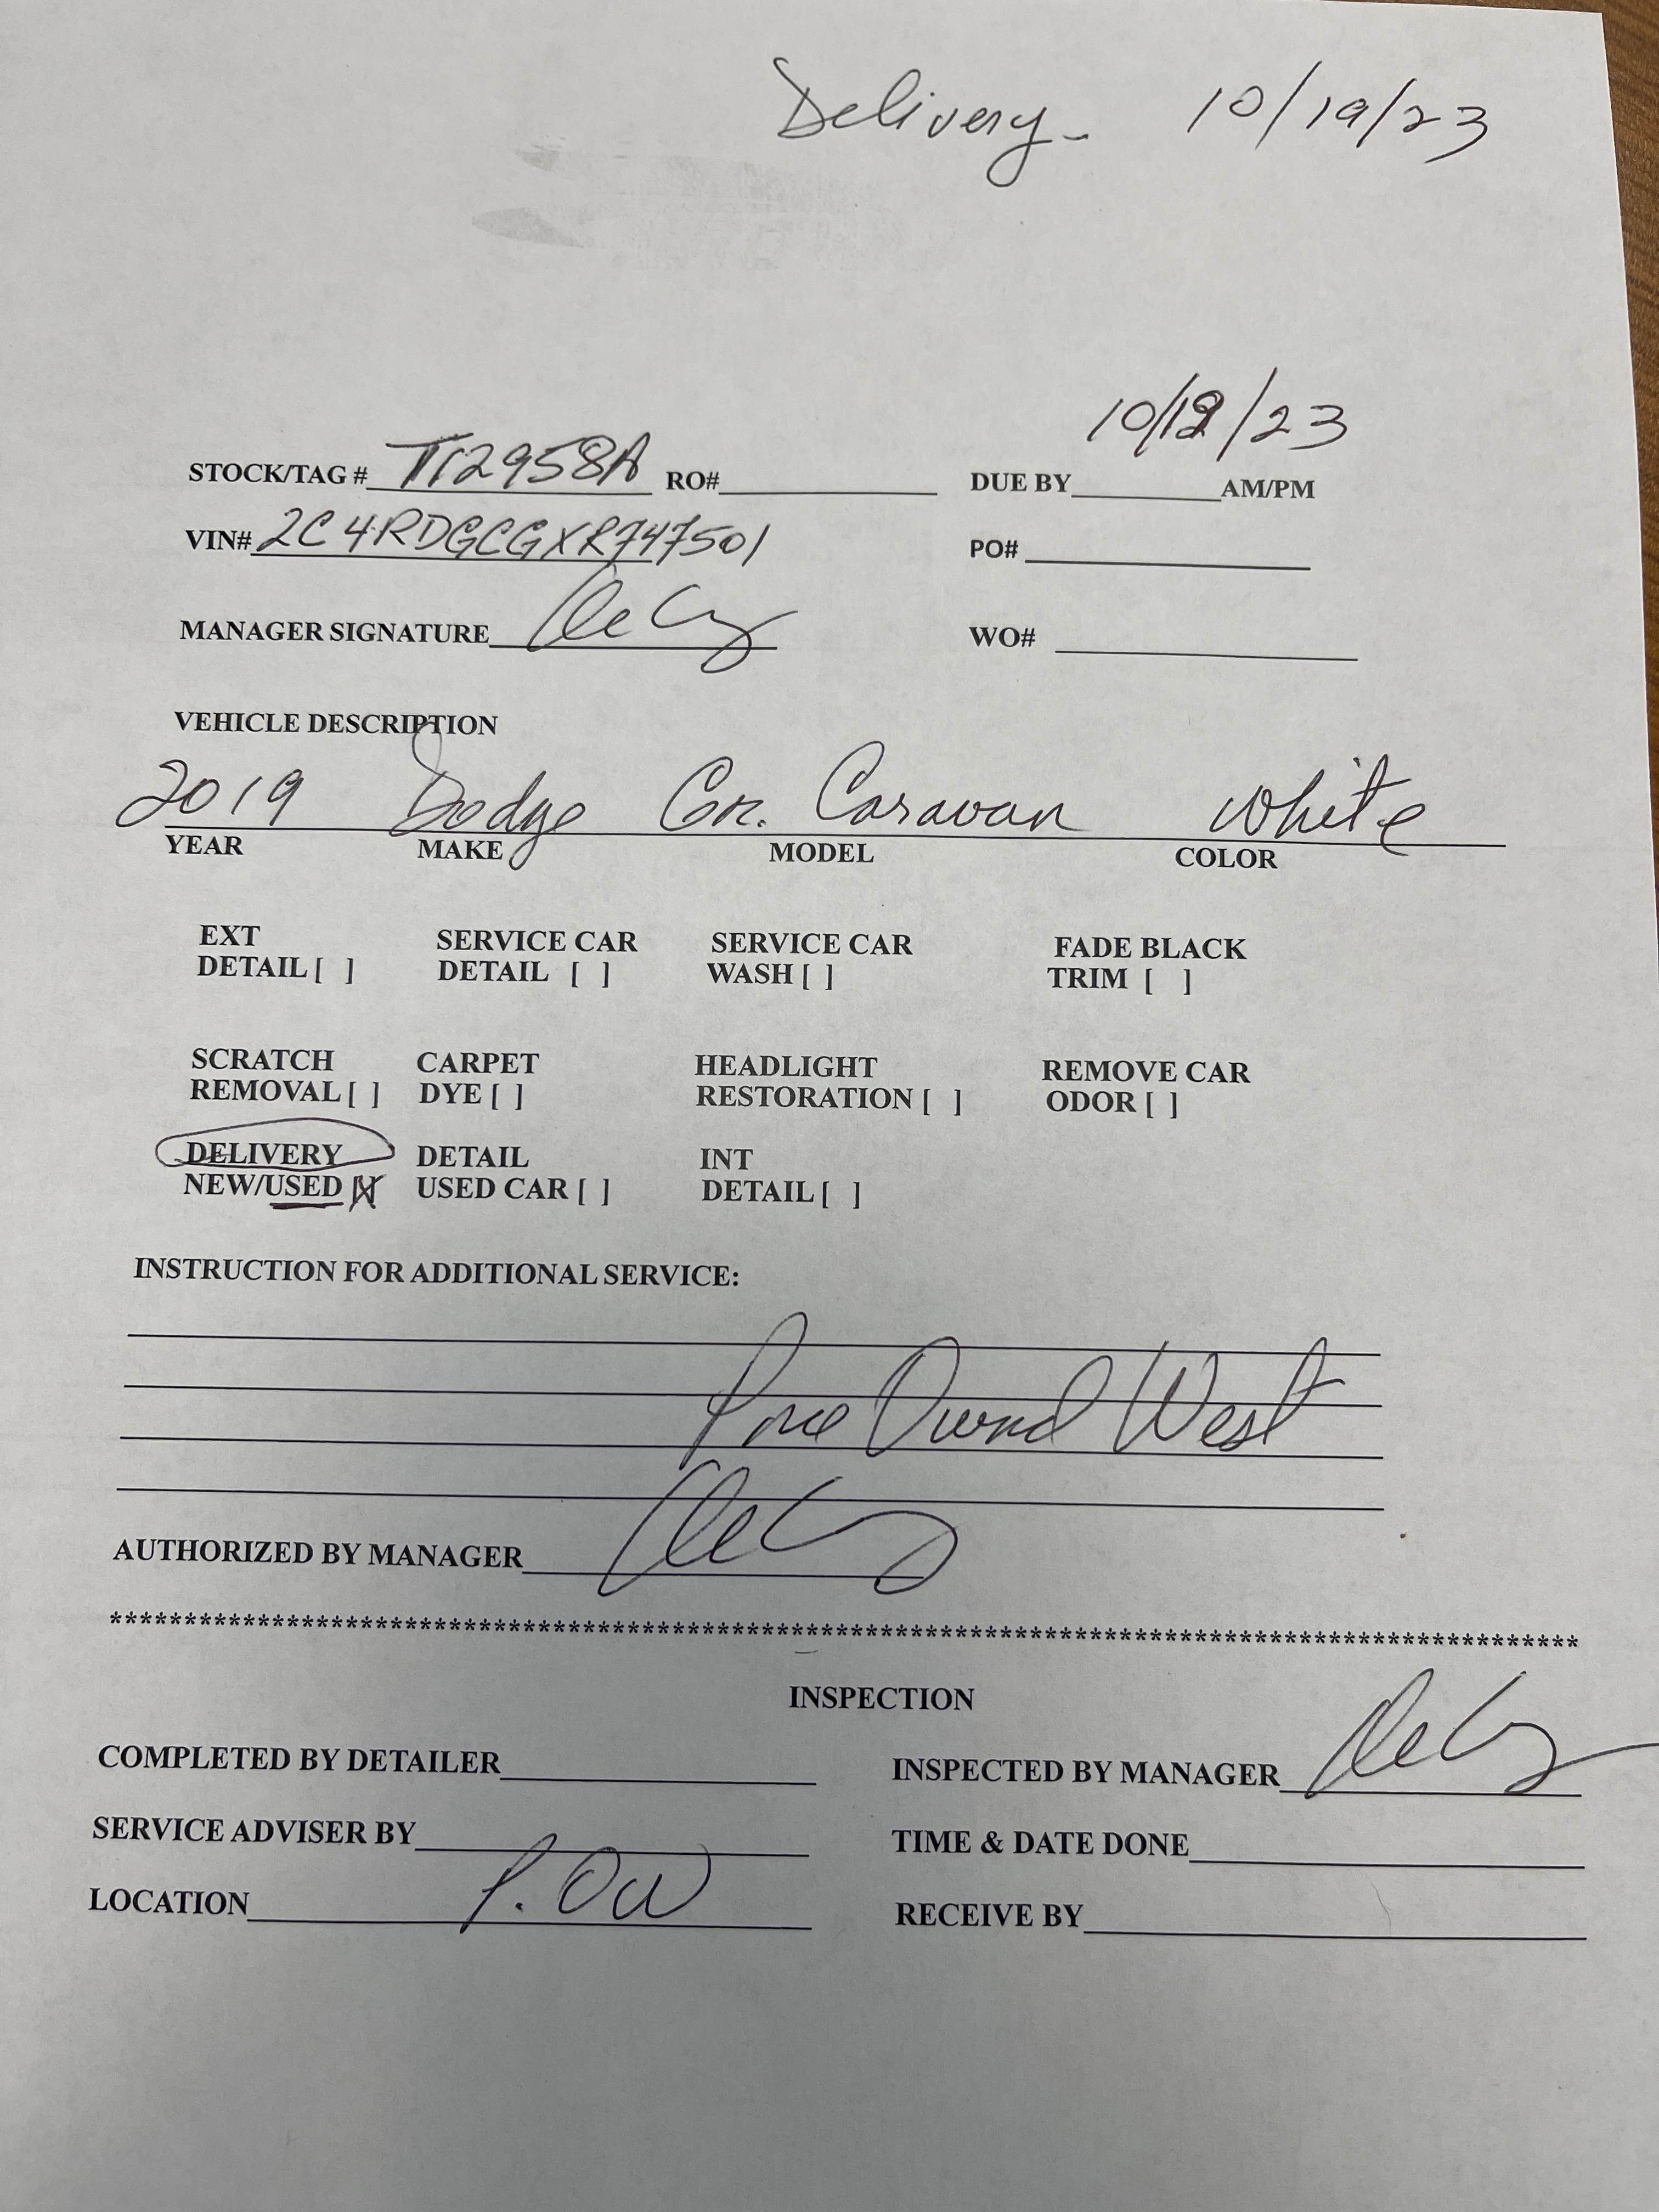 Delivery- 10/19/23
10/18/23
STOCK/TAG # T12958A RO# DUE BY AM/PM
VIN# 2C4RDGCGXKR747501 PO#
MANAGER SIGNATURE WO#
VEHICLE DESCRIPTION
2019 Dodge Gr. Caravan white
YEAR MAKE MODEL COLOR
EXT SERVICE CAR SERVICE CAR FADE BLACK
DETAIL [ ] DETAIL [ ] WASH [ ] TRIM [ ]
SCRATCH CARPET HEADLIGHT REMOVE CAR
REMOVAL [ ] DYE [ ] RESTORATION [ ] ODOR [ ]
DELIVERY DETAIL INT
NEW/USED [X] USED CAR [ ] DETAIL [ ]
INSTRUCTION FOR ADDITIONAL SERVICE:
Pre Ownd West
AUTHORIZED BY MANAGER
****************************************************************************************************
INSPECTION
COMPLETED BY DETAILER INSPECTED BY MANAGER
SERVICE ADVISER BY TIME & DATE DONE
LOCATION P. OW RECEIVE BY